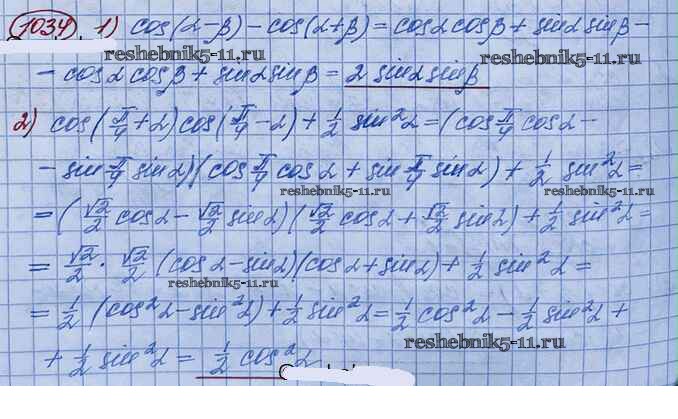 1034 1) cos(α-β) - cos(α+β) = cosα cosβ + sinα sinβ -
www.reshebnik5-11.ru
- cosα cosβ + sinα sinβ = 2 sinα sinβ
2) cos(π/4 + α) cos(π/4 - α) + 1/2 sin²α = (cos π/4 cosα -
- sin π/4 sinα)(cos π/4 cosα + sin π/4 sinα) + 1/2 sin²α =
reshebnik5-11.ru
reshebnik5-11.ru
= (√2/2 cosα - √2/2 sinα)(√2/2 cosα + √2/2 sinα) + 1/2 sin²α =
= √2/2 · √2/2 (cosα - sinα)(cosα + sinα) + 1/2 sin²α =
www.reshebnik5-11.ru
= 1/2 (cos²α - sin²α) + 1/2 sin²α = 1/2 cos²α - 1/2 sin²α +
reshebnik5-11.ru
+ 1/2 sin²α = 1/2 cos²α